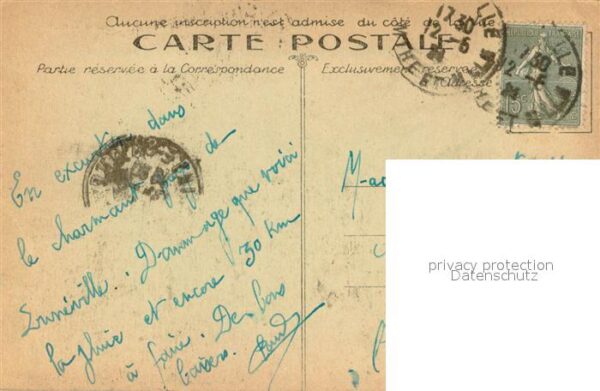 Aucune inscription n'est admise du côté de la vue
CARTE POSTALE
Partie réservée à la Correspondance
Exclusivement réservé
adresse
17 30
2-6
ILLE
MEURTHE ET M
RÉPUBLIQUE FRANÇAISE
15c
En excursion dans
le charmant pays de
Lunéville. Dommage que voici
la pluie et encore 30 km
à faire. De bons
baisers.
M
privacy protection
Datenschutz